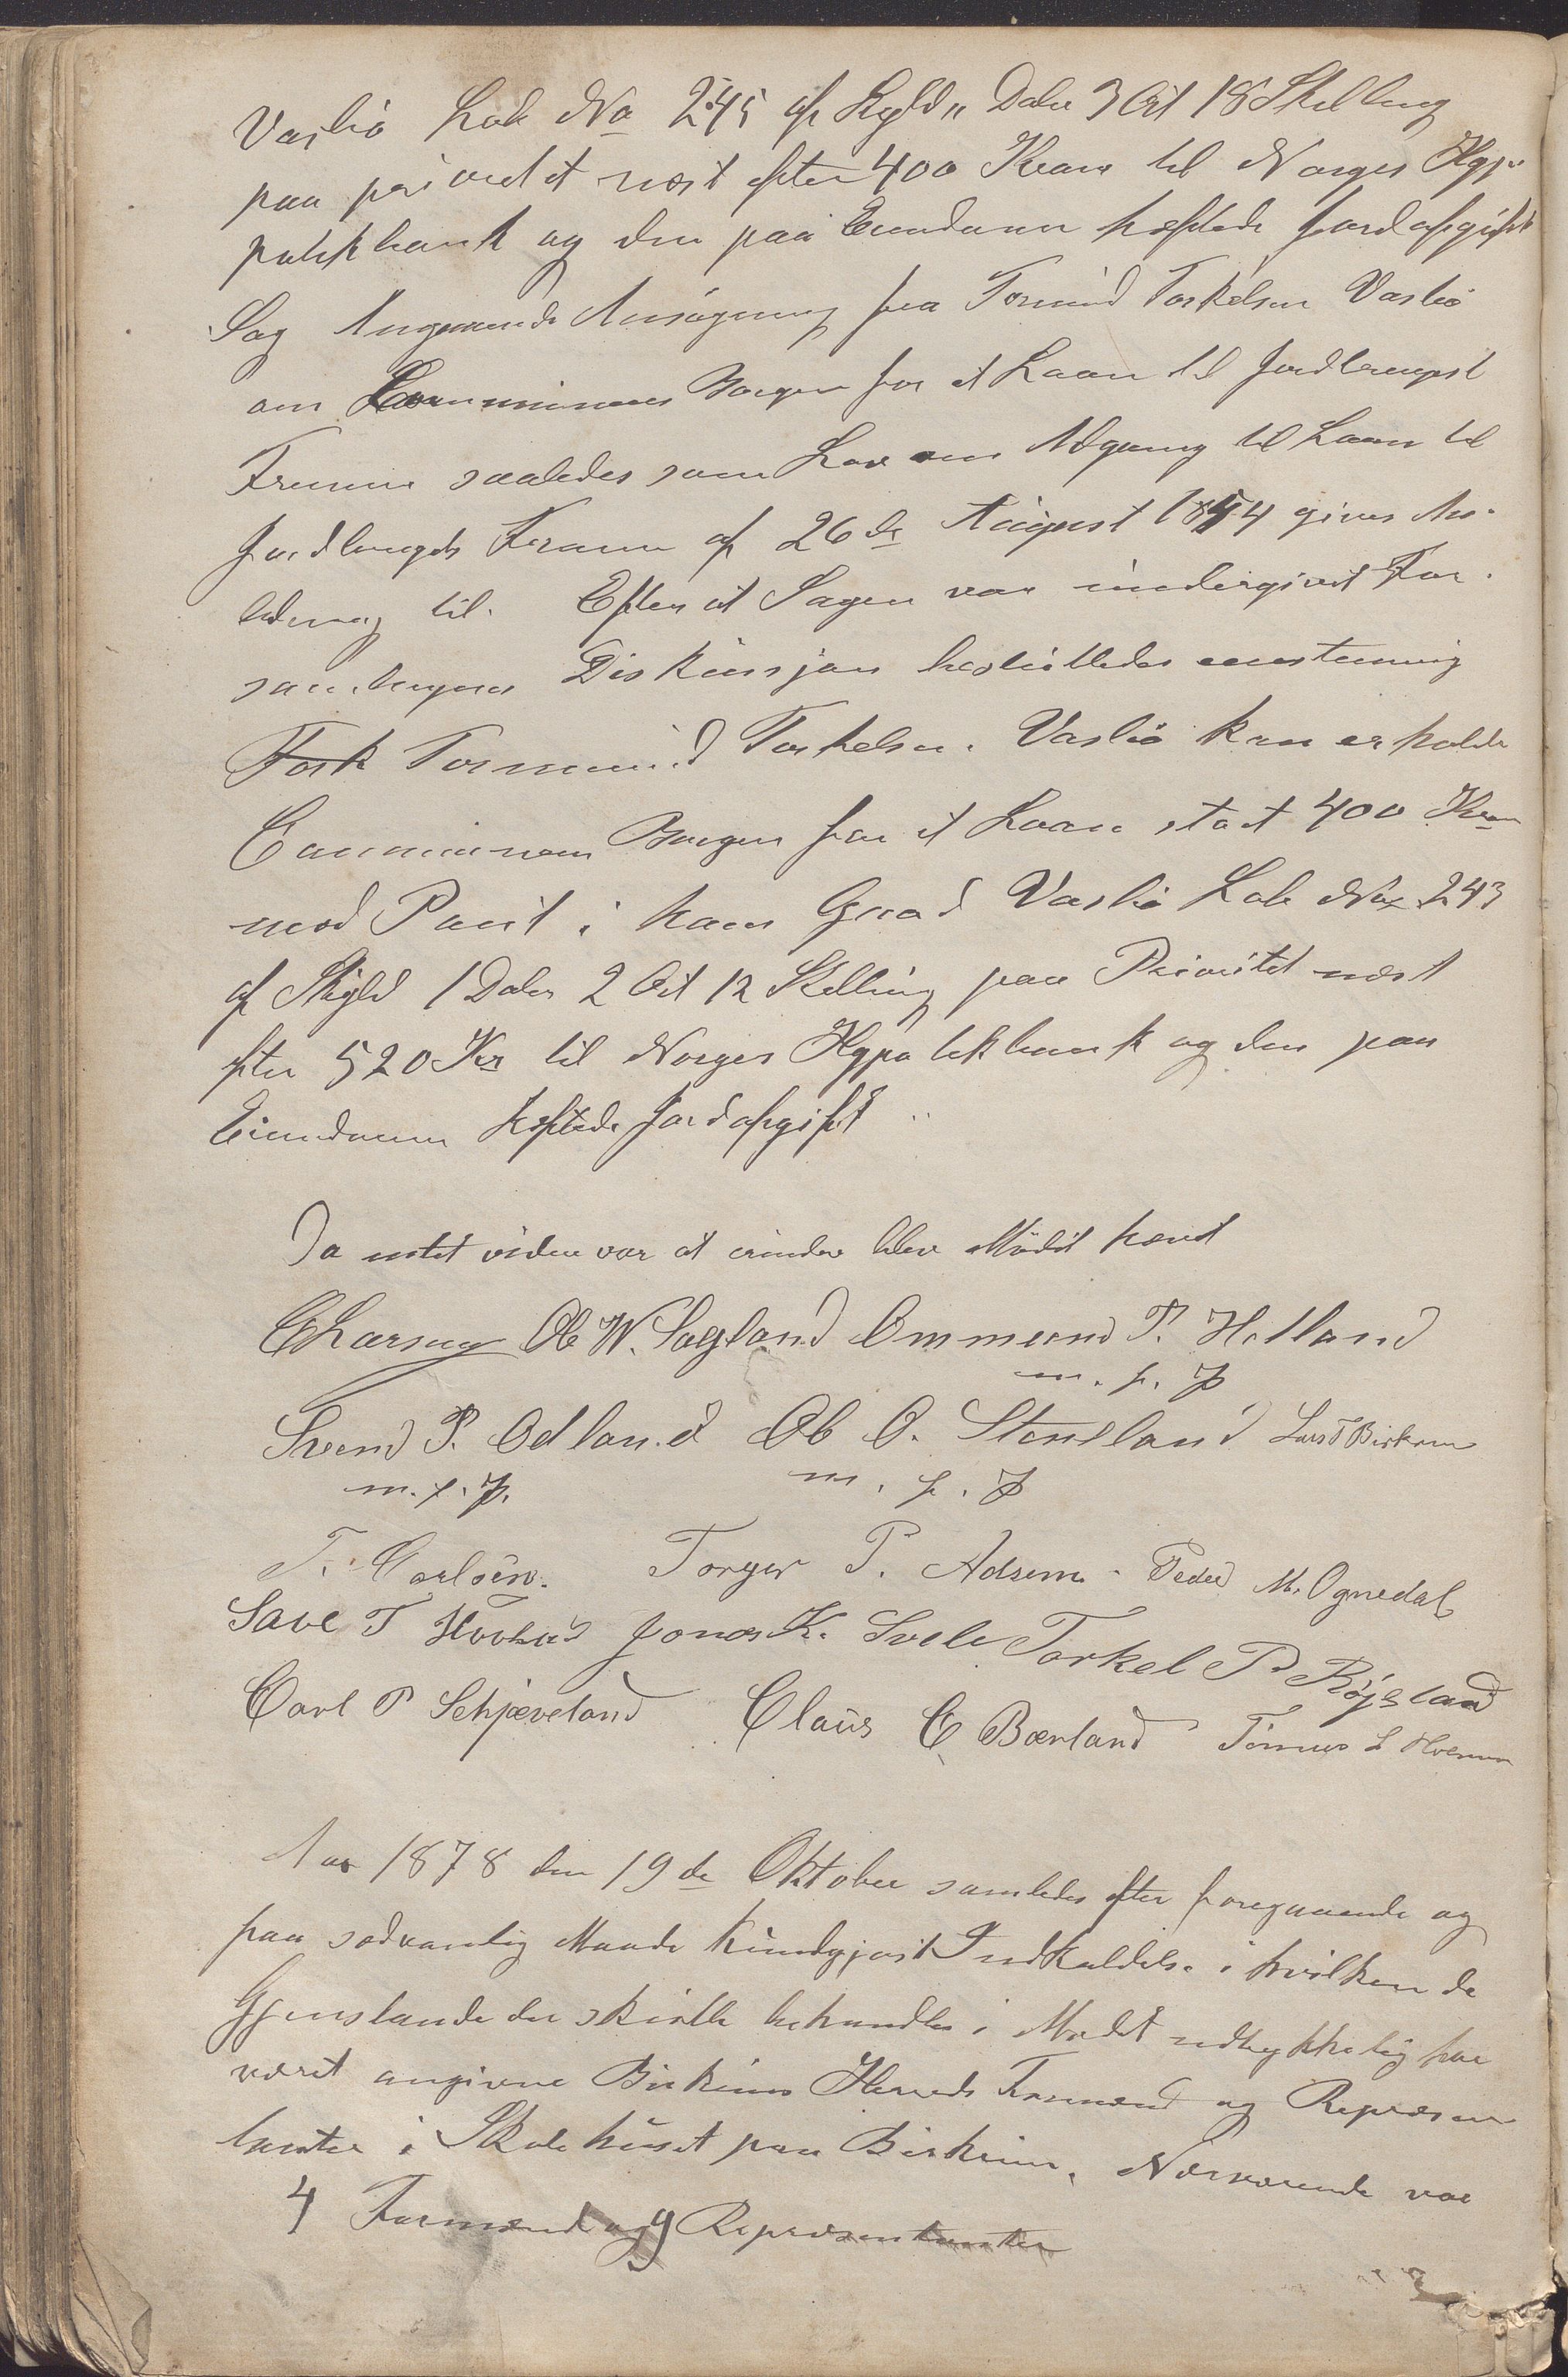 Vasbø Løb No 245 af Skyld " Daler 3 Ort 18 Skilling
paa prioritet næst efter 400 Kroner til Norges Hypo
thekbank og den paa Eiendommen heftede Jordafgift
Sag Angaaende Ansøgning fra Tormund Torkelsen Vasbø
om Communens Borgen for et Laan til Jordbrugets
Fremme saaledes som Lov om Adgang til Laan til
Jordbrugets Fremme af 26de August 1854 giver An-
ledning til. Efter at Sagen var undergivet For-
samlingens Diskusjon besluttedes enstemmig
Tork Tormund Torkelsen Vasbø kan erholde
Communens Borgen for et Laan stort 400 Kroner
mod Pant i hans Gaard Vasbø Løb No 243
af Skyld 1 Daler 2 Ort 12 Skilling paa Prioritet næst
efter 520 Kr til Norges Hypothekbank og den paa
Eiendommen heftede Jordafgift
Da intet videre var at erindre blev Mødet hævet
Ole W. Sagland Ommund P. Hetland
m. p. P
Svend P. Odland Ole O. Stensland Lars T Birkrem
m. p. P. m. p. P
T. Carlsen. Torger P. Adsem Peder M. Ognedal
Save T Hovland Jonas K. Svele Torkel P. Røjsland
Carl P Schjæveland Claus C Bærland Tønnes L
Aar 1878 den 19de Oktober samledes efter foregaaende og
paa sedvanlig Maade kundgjort Indkaldelse i hvilken de
Gjenstande der skulle behandles i Mødet udtrykkelig har
været angivne Birkrims Herreds Formænd og Repræsen
tanter i Skolehuset paa Birkrim. Nærværende var
4 Formænd og 9 Repræsentanter